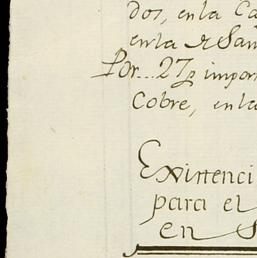 dos, en la Ca
en la de San
Por... 27 p impor
Cobre, en la
Existenci
para el
en S